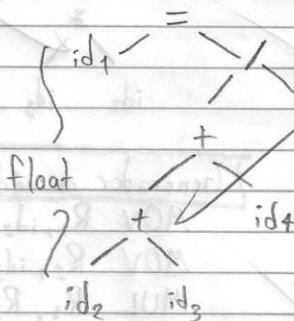 =
id1 /
+
float
+ id4
id2 id3